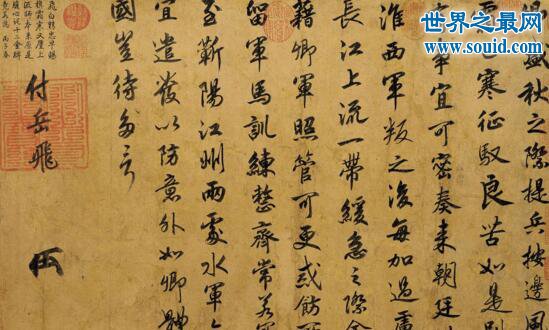 www.souid.com
盛秋之際提兵按邊風
已寒征馭良苦如是別
事宜可密奏来朝廷
淮西軍叛之後每加過慮
長江上流一帶緩急之際全
藉卿軍照管可更戒飭所
留軍馬訓練整齊常若
至蘄陽江州兩處水軍亦
宜遣發以防意外如卿體
國豈待多言
付岳飛
飛白精忠早錫